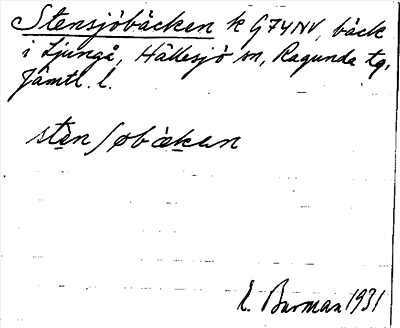 Stensjöbäcken k G74NV, bäck
i Ljungå, Hällesjö sn, Ragunda tg,
Jämtl. l.
stenʃøbækan
E. Burman 1931